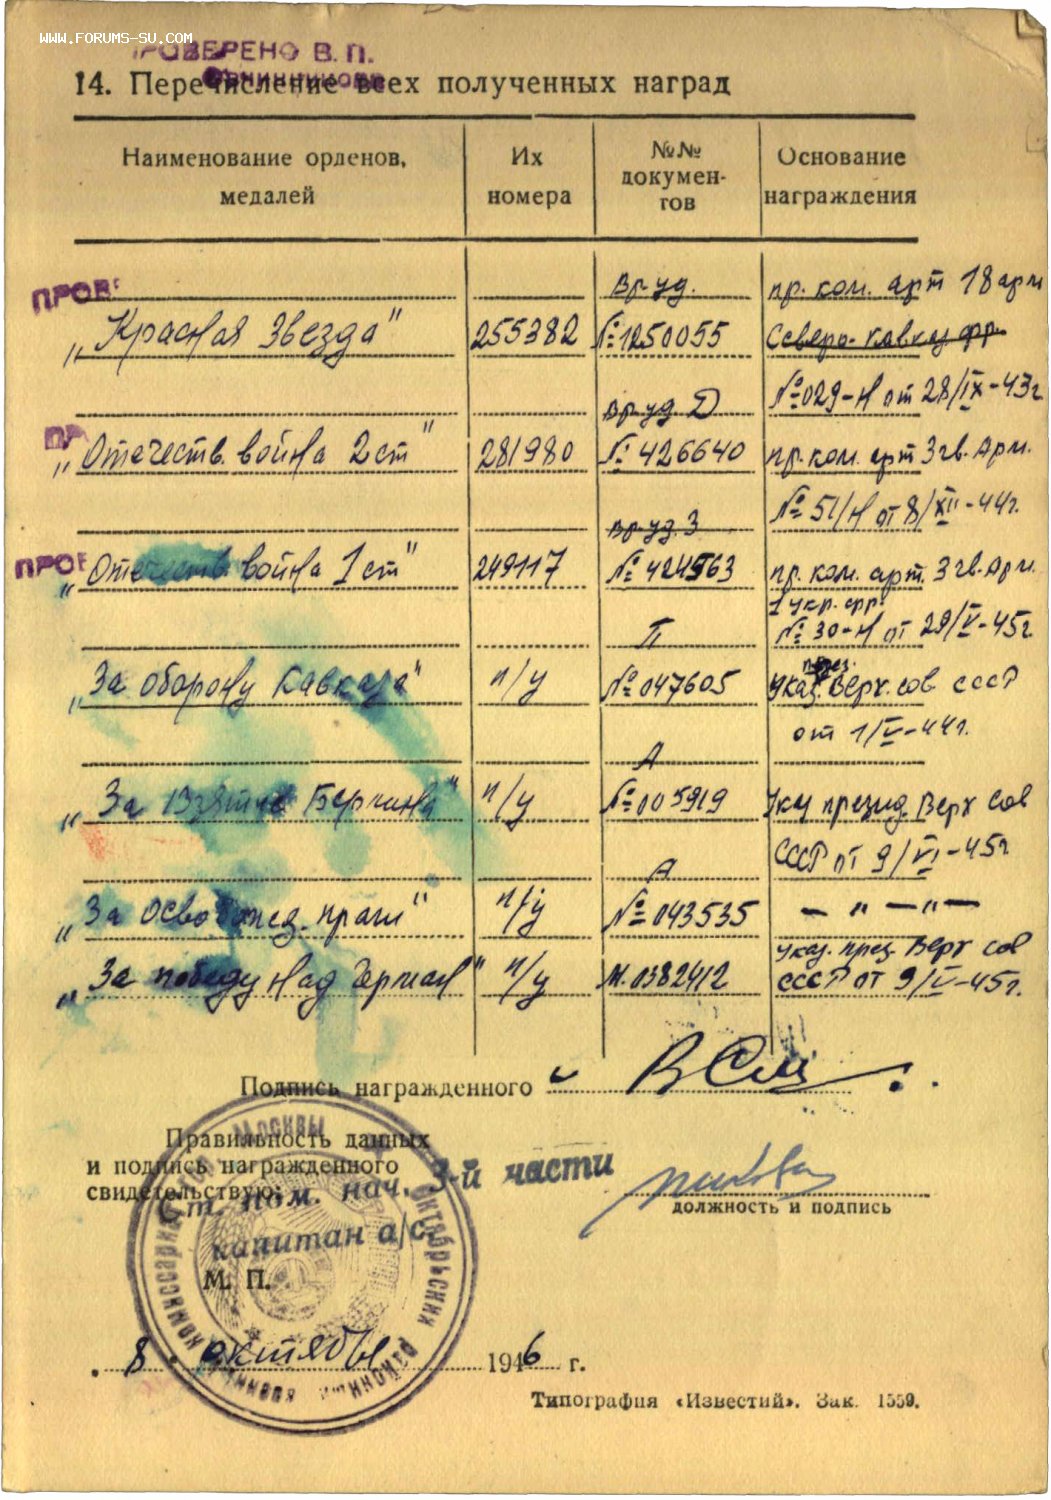 WWW.FORUMS-SU.COM
ПРОВЕРЕНО В. П.
14. Перечисление всех полученных наград
Наименование орденов, медалей
Их номера
№№ документов
Основание награждения
ПРОВ
Вр уд. пр. ком. арт 18 арм
„Красная Звезда" 255382 №1250055 Северо-Кавказ. фр.
Вр уд Д №029-Н от 28/IX-43г
„Отечеств. война 2 ст" 281980 № 426640 пр. ком. арт 3 гв. Арм.
Вр уд. З № 51/Н от 8/XII-44г.
ПРОВ
„Отечеств. война 1 ст" 249117 № 424563 пр. ком. арт. 3 гв. Арм.
1 Укр. фр.
П № 30-Н от 29/V-45г
„За оборону Кавказа" н/у № 047605 Указ. през. Верх. сов СССР
от 1/V-44г.
А
„За взятие Берлина" н/у № 005919 Ук презид. Верх Сов
СССР от 9/VI-45г
А
„За Освобожд. праги" н/у № 043535 — " — " —
Указ. през. Верх Сов
„За победу над Герман" н/у М. 0382412 СССР от 9/V-45г.
Подпись награжденного
Правильность данных
и подпись награжденного
свидетельствую:
Ст. пом. нач. 3-й части
капитан а/с
должность и подпись
М. П.
МОСКВЫ Октябрьский районный военный комиссариат гор.
8 октября 1946 г.
Типография «Известий». Зак. 1559.